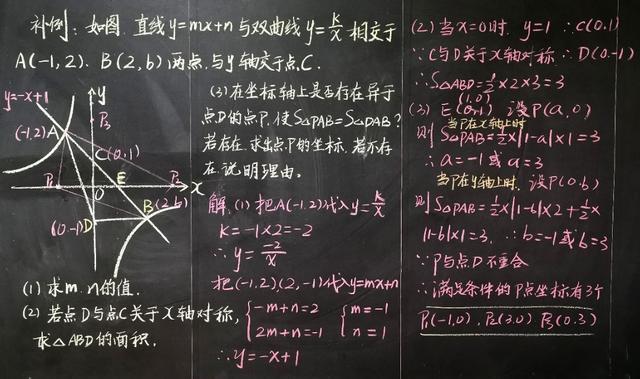 补例：如图，直线y=mx+n与双曲线y=k/x相交于
A(-1,2)、B(2,b)两点，与y轴交于点C.
y=-x+1
y
P₃
(-1,2)
A
C(0,1)
P₁
E
P₂
x
O
B
(2,b)
(0,-1)
D
(1) 求m、n的值.
(2) 若点D与点C关于x轴对称,
求△ABD的面积.
(3) 在坐标轴上是否存在异于
点D的点P,使S△PAB=S△DAB?
若存在,求出点P的坐标,若不存
在,说明理由。
解:(1) 把A(-1,2)代入y=k/x
K=-1×2=-2
∴y=-2/x
把(-1,2)(2,-1)代入y=mx+n
{-m+n=2 {m=-1
2m+n=-1 n=1
∴y=-x+1
(2) 当x=0时, y=1 ∴C(0,1)
∵C与D关于x轴对称∴D(0,-1)
∴S△ABD=1/2×2×3=3
(3) E(1,0) 设P(a,0)
当P在x轴上时
则S△PAB=1/2×|1-a|×1=3
∴a=-1或a=3
当P在y轴上时, 设P(0,b)
则S△PAB=1/2×|1-b|×2+1/2×
|1-b|×1=3, ∴b=-1或b=3
∵P与点D不重合
∴满足条件的P点坐标有3个
P₁(-1,0), P₂(3,0) P₃(0,3)